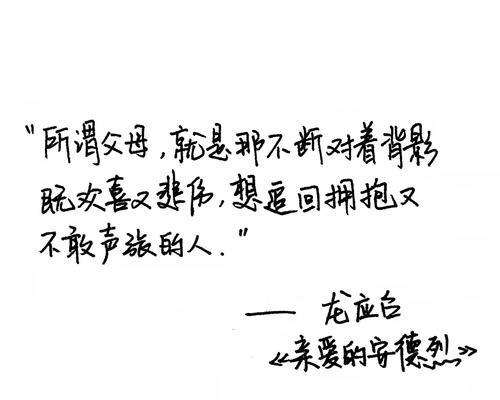 "所谓父母,就是那不断对着背影
既欢喜又悲伤,想追回拥抱又
不敢声张的人."
—— 龙应台
《亲爱的安德烈》